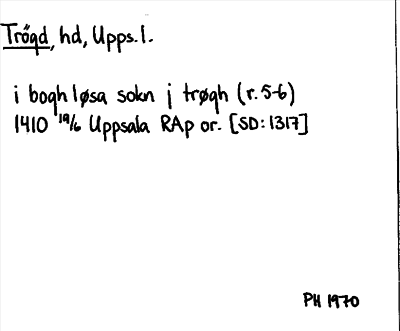 Trögd, hd, Upps.l.
i boghløsa sokn j trøgh (r. 5-6)
1410 19/6 Uppsala RAp or. [SD: 1317]
PH 1970